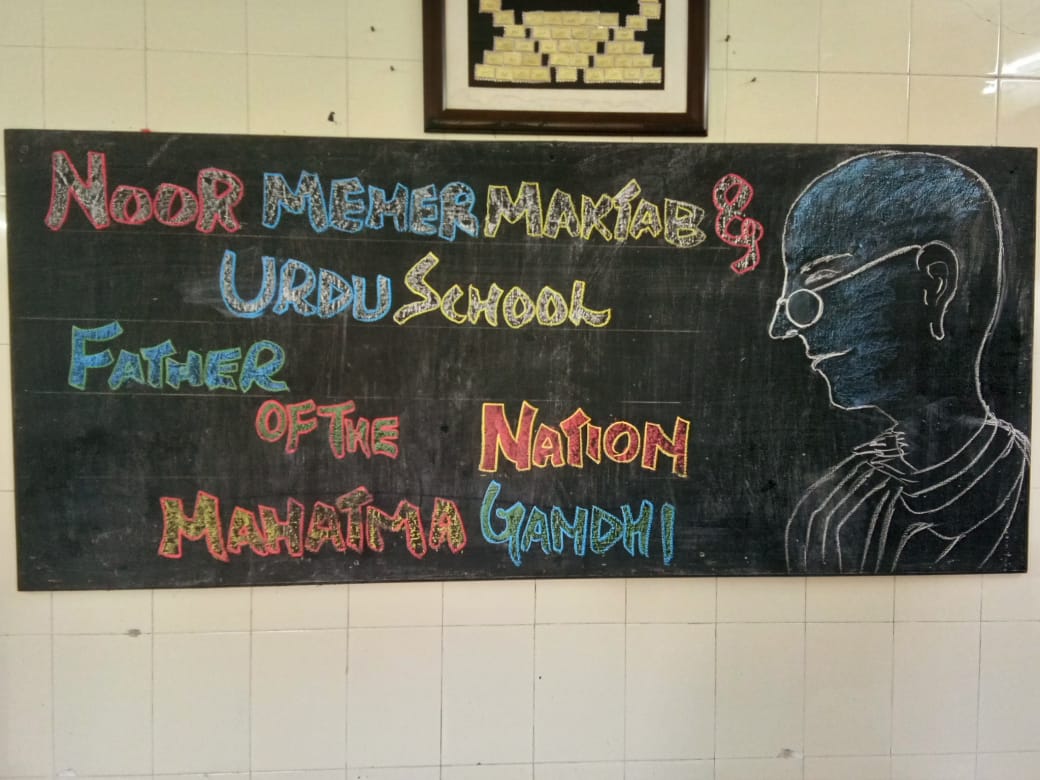 NOOR MEHER MAKTAB &
URDU SCHOOL
FATHER
OF THE NATION
MAHATMA GANDHI